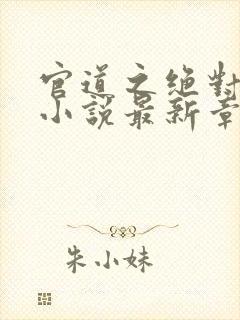 官道之绝對
小說最新章
朱小妹